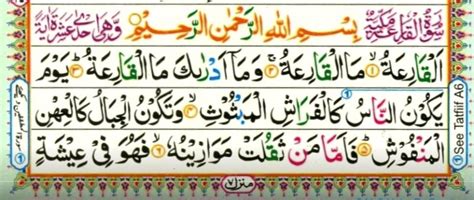 سُوْرَةُ الْقَارِعَةِ مَكِّيَّةٌ بِسْمِ اللهِ الرَّحْمٰنِ الرَّحِيْمِ وَهِيَ اِحْدٰى عَشْرَةَ اٰيَةً
اَلْقَارِعَةُ ۙ۝١ مَا الْقَارِعَةُ ۚ۝٢ وَمَآ اَدْرٰىكَ مَا الْقَارِعَةُ ؕ۝٣ يَوْمَ
يَكُوْنُ النَّاسُ كَالْفَرَاشِ الْمَبْثُوْثِ ۙ۝٤ وَتَكُوْنُ الْجِبَالُ كَالْعِهْنِ
الْمَنْفُوْشِ ؕ۝٥ فَاَمَّا مَنْ ثَقُلَتْ مَوَازِيْنُهٗ ۙ۝٦ فَهُوَ فِيْ عِيْشَةٍ
منزل ٧
See Tatfiif A6